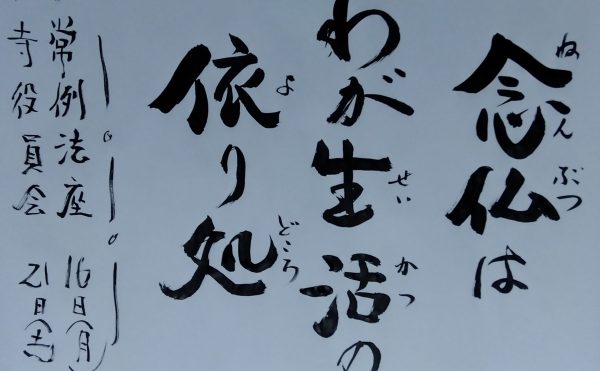 念仏は
ねんぶつ
わが生活の
せいかつ
依り処
よどころ
常例法座 16日(月)
寺役員会 21日(土)